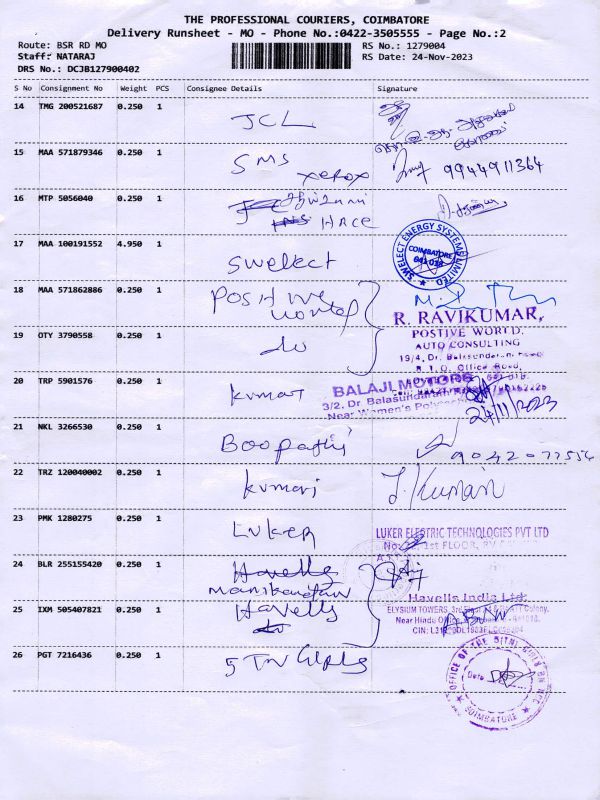 THE PROFESSIONAL COURIERS, COIMBATORE
Delivery Runsheet - MO - Phone No.:0422-3505555 - Page No.:2
Route: BSR RD MO RS No.: 1279004
Staff: NATARAJ RS Date: 24-Nov-2023
DRS No.: DCJB127900402
S No Consignment No Weight PCS Consignee Details Signature
14 TMG 200521687 0.250 1 JCL
15 MAA 571879346 0.250 1 SMS
xerox 9944911364
16 MTP 5056040 0.250 1
HACE
17 MAA 100191552 4.950 1 Swelect
SWELECT ENERGY SYSTEMS LIMITED
COIMBATORE
641 018
18 MAA 571862886 0.250 1 Positive
world
R. RAVIKUMAR,
POSTIVE WORLD.
AUTO CONSULTING
19/4, Dr. Balasundaram Road
R.T.O. Office Road,
19 OTY 3790558 0.250 1 do
20 TRP 5901576 0.250 1 kumar
BALAJI MOTORS
3/2, Dr. Balasundaram
Near Women's
24/11/2023
21 NKL 3266530 0.250 1 Boopathi
9042077554
22 TRZ 120040002 0.250 1 kumar J. Kumar
23 PMK 1280275 0.250 1 Luker
LUKER ELECTRIC TECHNOLOGIES PVT LTD
1st FLOOR,
24 BLR 255155420 0.250 1 Havells
Manikandan
Havells India Ltd.
25 IXM 505407821 0.250 1 Havells
do
ELYSIUM TOWERS, 3rd Floor Colony.
Near Hindu Office,
26 PGT 7216436 0.250 1 5 TN Girls
OFFICE OF THE 5(TN) GIRLS BN NCC
Date
COIMBATORE